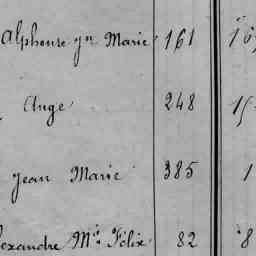 Alphonse Jn Marie 161
Ange 248
Jean Marie 385 1
exandre Mie Félix 82 8